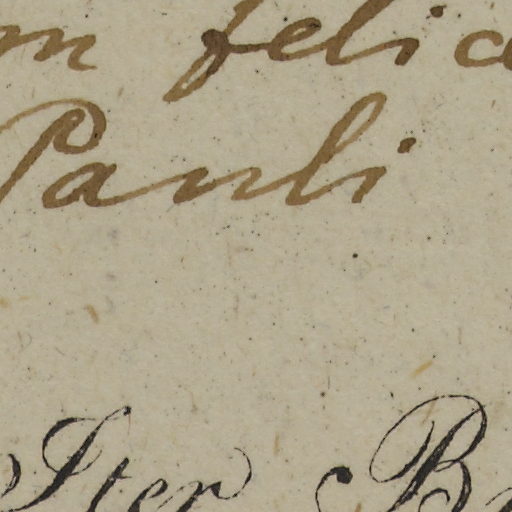 m felic
Pauli
Iter B